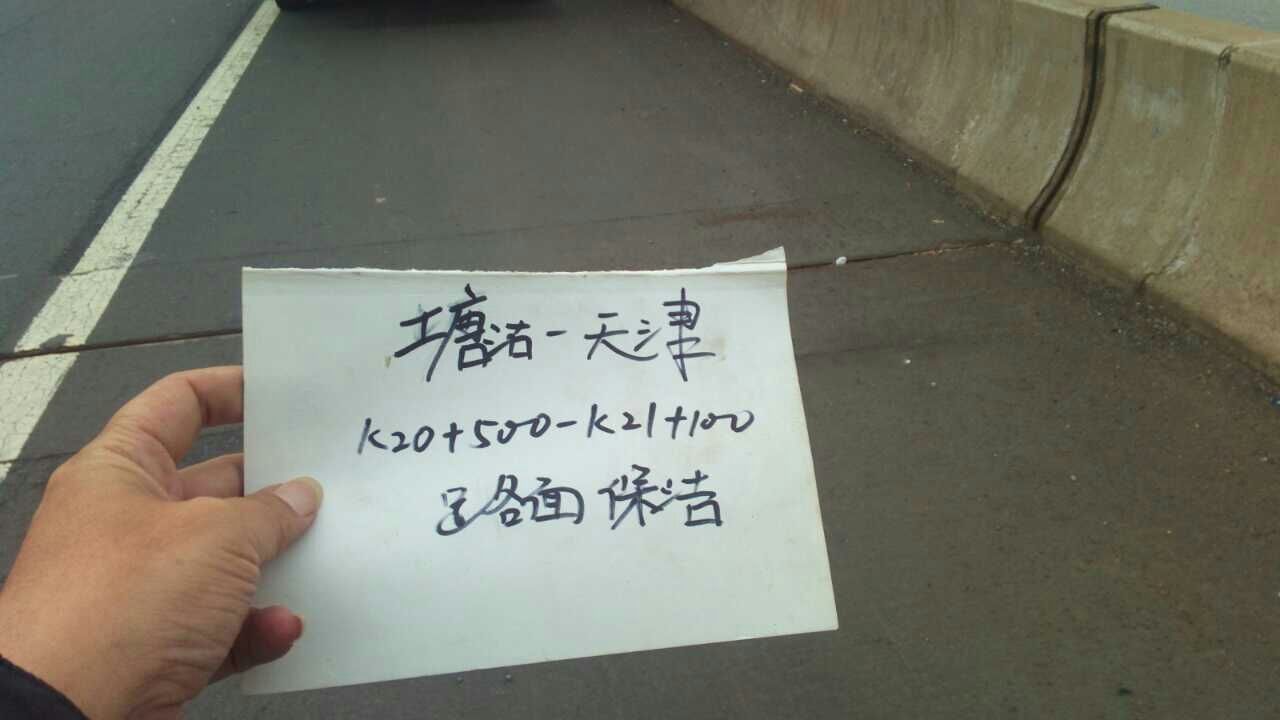 塘沽-天津
K20+500-K21+100
路面保洁